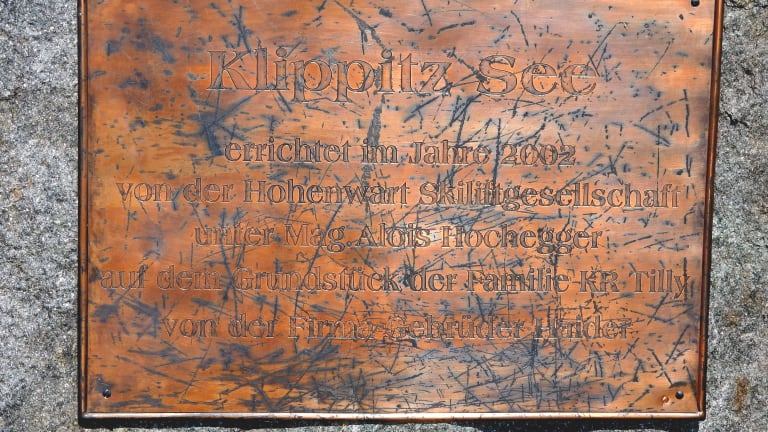 Klippitz See
errichtet im Jahre 2002
von der Hohenwart Skiliftgesellschaft
unter Mag. Alois Hochegger
auf dem Grundstück der Familie KR Tilly
von der Firma Gebrüder Haider